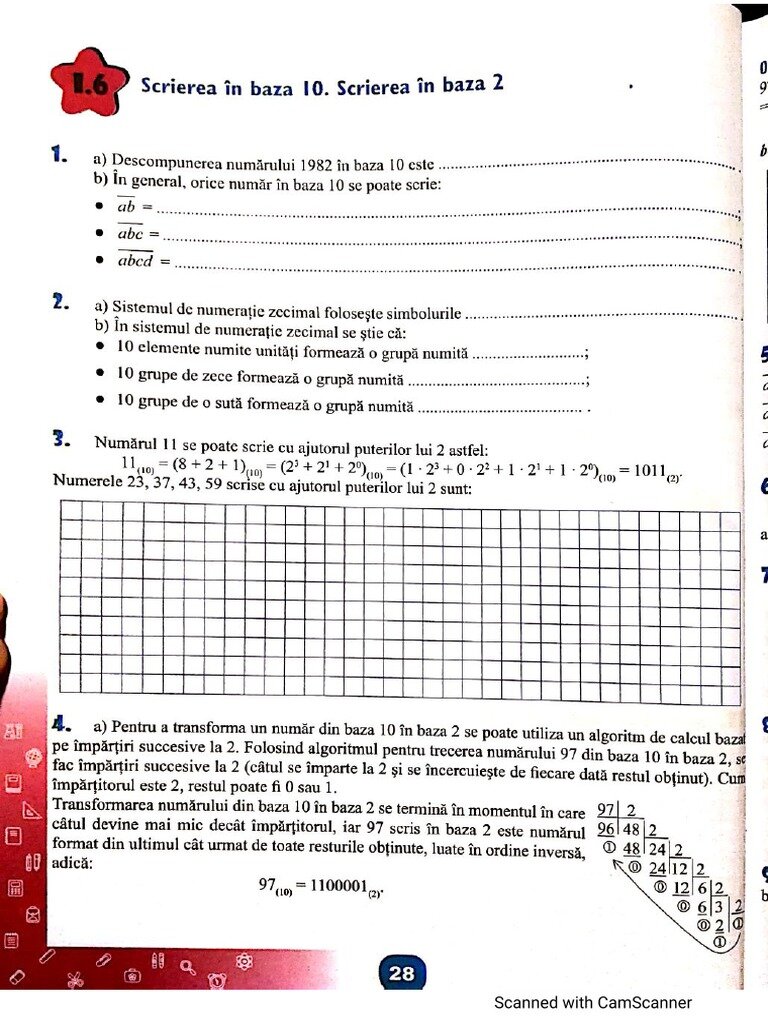 1.6 Scrierea în baza 10. Scrierea în baza 2
1. a) Descompunerea numărului 1982 în baza 10 este ..........
b) În general, orice număr în baza 10 se poate scrie:
• a̅b̅ = ..........;
• a̅b̅c̅ = ..........;
• a̅b̅c̅d̅ = ..........
2. a) Sistemul de numerație zecimal folosește simbolurile ..........
b) În sistemul de numerație zecimal se știe că:
• 10 elemente numite unități formează o grupă numită ..........;
• 10 grupe de zece formează o grupă numită ..........;
• 10 grupe de o sută formează o grupă numită .......... .
3. Numărul 11 se poate scrie cu ajutorul puterilor lui 2 astfel:
11₍₁₀₎ = (8 + 2 + 1)₍₁₀₎ = (2³ + 2¹ + 2⁰)₍₁₀₎ = (1 · 2³ + 0 · 2² + 1 · 2¹ + 1 · 2⁰)₍₁₀₎ = 1011₍₂₎.
Numerele 23, 37, 43, 59 scrise cu ajutorul puterilor lui 2 sunt:
4. a) Pentru a transforma un număr din baza 10 în baza 2 se poate utiliza un algoritm de calcul bazat
pe împărțiri succesive la 2. Folosind algoritmul pentru trecerea numărului 97 din baza 10 în baza 2, se
fac împărțiri succesive la 2 (câtul se împarte la 2 și se încercuiește de fiecare dată restul obținut). Cum
împărțitorul este 2, restul poate fi 0 sau 1.
Transformarea numărului din baza 10 în baza 2 se termină în momentul în care
câtul devine mai mic decât împărțitorul, iar 97 scris în baza 2 este numărul
format din ultimul cât urmat de toate resturile obținute, luate în ordine inversă,
adică:
97₍₁₀₎ = 1100001₍₂₎.
97 2
96 48 2
1 48 24 2
0 24 12 2
0 12 6 2
0 6 3 2
0 2 1
1
28
Scanned with CamScanner